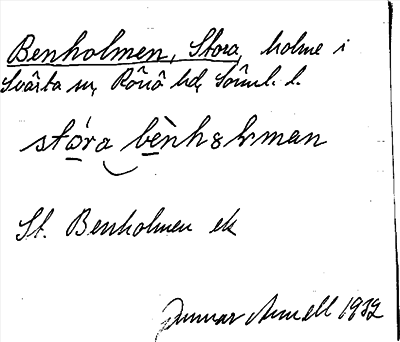 Benholmen, Stora, holme i
Svärta sn, Rönö hd, Söml. l.
stó̱ra bè̱nhɷlman
St. Benholmen ek
Gunnar Arnell 1932